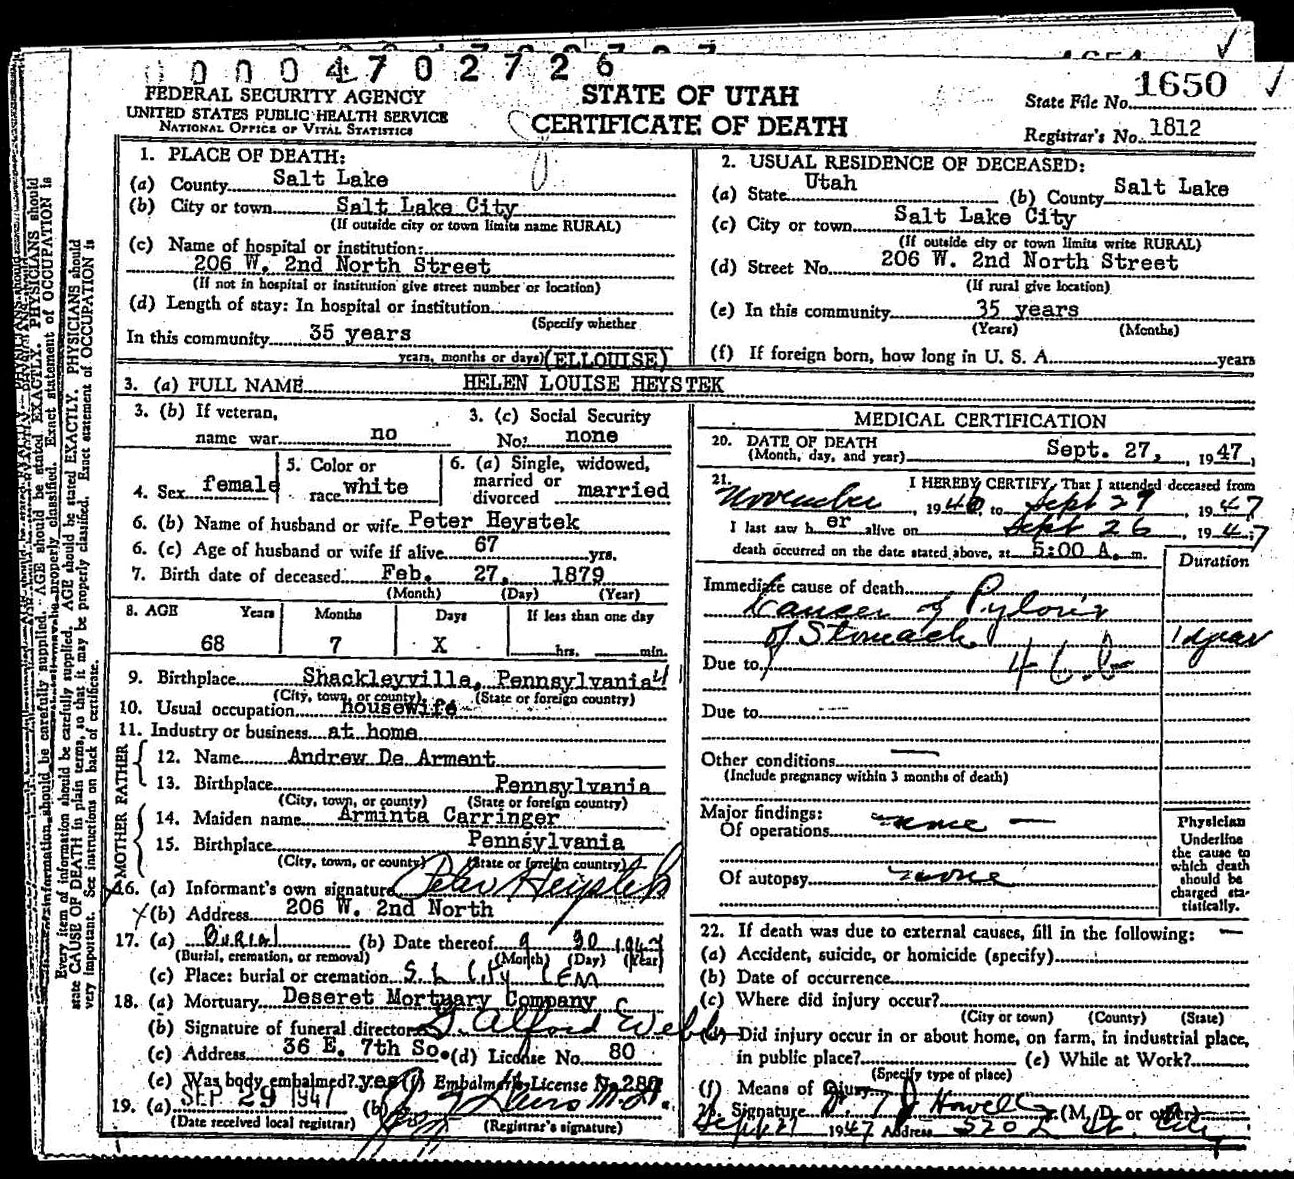 0004702726
FEDERAL SECURITY AGENCY
UNITED STATES PUBLIC HEALTH SERVICE
NATIONAL OFFICE OF VITAL STATISTICS
STATE OF UTAH
CERTIFICATE OF DEATH
State File No. 1650
Registrar's No. 1812
Every item of information should be carefully supplied. AGE should be stated EXACTLY. PHYSICIANS should
state CAUSE OF DEATH in plain terms, so that it may be properly classified. Exact statement of OCCUPATION is
very important. See instructions on back of certificate.
1. PLACE OF DEATH:
(a) County Salt Lake
(b) City or town Salt Lake City
(If outside city or town limits name RURAL)
(c) Name of hospital or institution:
206 W. 2nd North Street
(If not in hospital or institution give street number or location)
(d) Length of stay: In hospital or institution
(Specify whether
In this community 35 years
years, months or days)
2. USUAL RESIDENCE OF DECEASED:
(a) State Utah (b) County Salt Lake
(c) City or town Salt Lake City
(If outside city or town limits write RURAL)
(d) Street No. 206 W. 2nd North Street
(If rural give location)
(e) In this community 35 years
(Years) (Months)
(f) If foreign born, how long in U. S. A. years
(ELLOUISE)
3. (a) FULL NAME HELEN LOUISE HEYSTEK
3. (b) If veteran,
name war no
3. (c) Social Security
No. none
4. Sex female
5. Color or
race white
6. (a) Single, widowed,
married or
divorced married
6. (b) Name of husband or wife Peter Heystek
6. (c) Age of husband or wife if alive 67 yrs.
7. Birth date of deceased Feb. 27, 1879
(Month) (Day) (Year)
8. AGE Years Months Days If less than one day
68 7 X hrs. min.
9. Birthplace Shackleyville, Pennsylvania
(City, town, or county) (State or foreign country)
10. Usual occupation housewife
11. Industry or business at home
FATHER
12. Name Andrew De Arment
13. Birthplace Pennsylvania
(City, town, or county) (State or foreign country)
MOTHER
14. Maiden name Arminta Carringer
15. Birthplace Pennsylvania
(City, town, or county) (State or foreign country)
16. (a) Informant's own signature Peter Heystek
(b) Address 206 W. 2nd North
17. (a) Burial (b) Date thereof 9 30 1947
(Burial, cremation, or removal) (Month) (Day) (Year)
(c) Place: burial or cremation S. L City CEM
18. (a) Mortuary Deseret Mortuary Company
(b) Signature of funeral director G. Alford Webb
(c) Address 36 E. 7th So. (d) License No. 80
(e) Was body embalmed? yes (f) Embalmer's License No. 280
19. (a) SEP 29 1947 (b)
(Date received local registrar) (Registrar's signature)
MEDICAL CERTIFICATION
20. DATE OF DEATH
(Month, day, and year) Sept. 27, 1947
21. I HEREBY CERTIFY, That I attended deceased from
November, 1946 to Sept 29, 1947
I last saw her alive on Sept 26, 1947;
death occurred on the date stated above, at 5:00 A. m.
Duration
Immediate cause of death
Cancer of Pylorus
of Stomach 1 year
Due to 46b
Due to
Other conditions
(Include pregnancy within 3 months of death)
Major findings:
Of operations none
Of autopsy none
Physician
Underline
the cause to
which death
should be
charged sta-
tistically.
22. If death was due to external causes, fill in the following:
(a) Accident, suicide, or homicide (specify)
(b) Date of occurrence
(c) Where did injury occur?
(City or town) (County) (State)
(d) Did injury occur in or about home, on farm, in industrial place,
in public place? (e) While at Work?
(Specify type of place)
(f) Means of Injury
23. Signature Howells (M. D. or other)
1947 Address